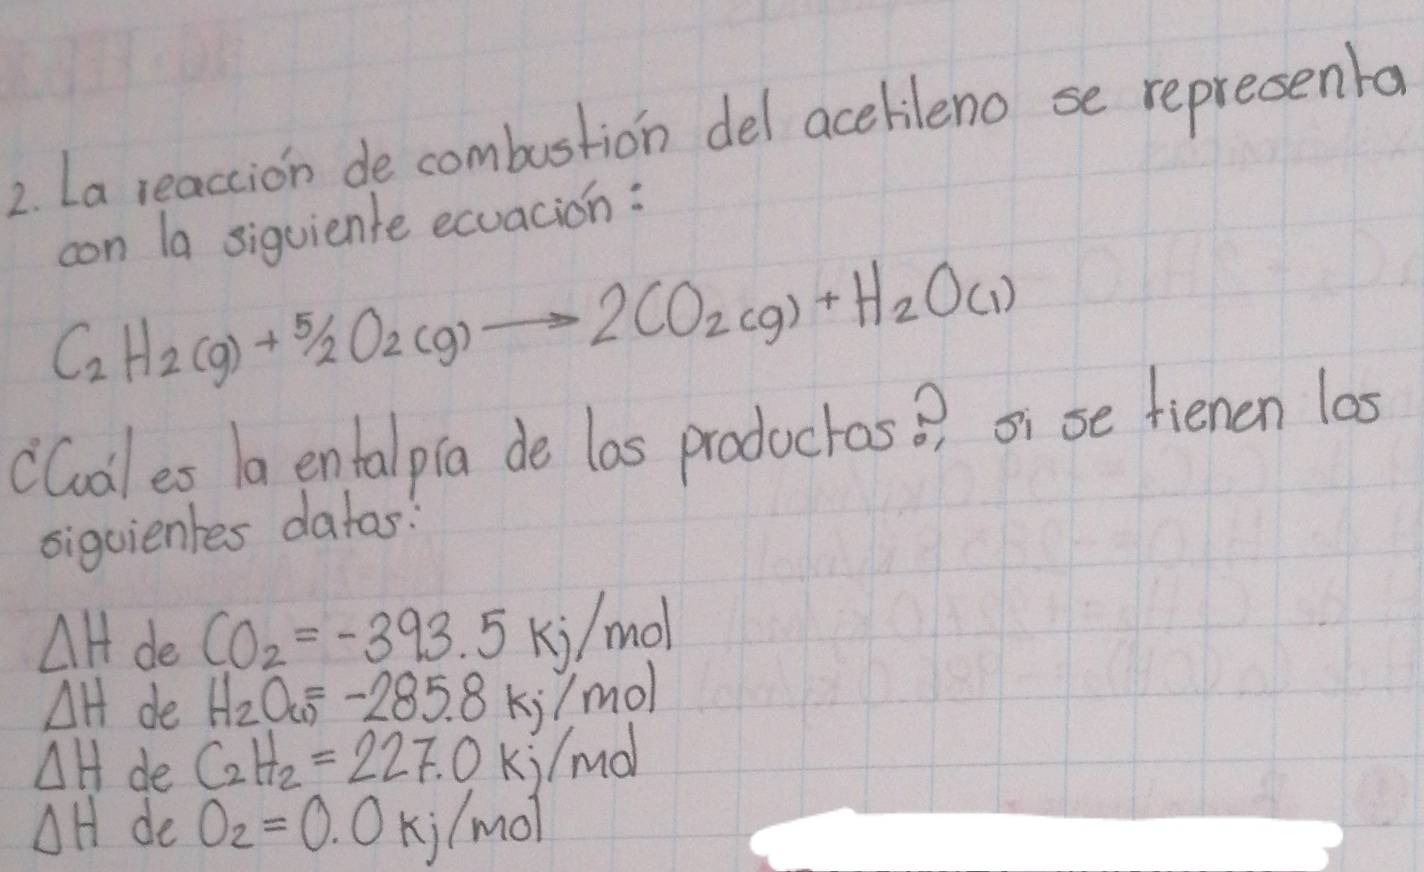 2. La reacción de combustión del acetileno se representa
con la siguiente ecuación:
C₂H₂(g) + 5/2 O₂(g) → 2CO₂(g) + H₂O(l)
¿Cuál es la entalpía de los productos?, si se tienen los
siguientes datos:
ΔH de CO₂ = -393.5 Kj/mol
ΔH de H₂O(l) = -285.8 Kj/mol
ΔH de C₂H₂ = 227.0 Kj/mol
ΔH de O₂ = 0.0 Kj/mol